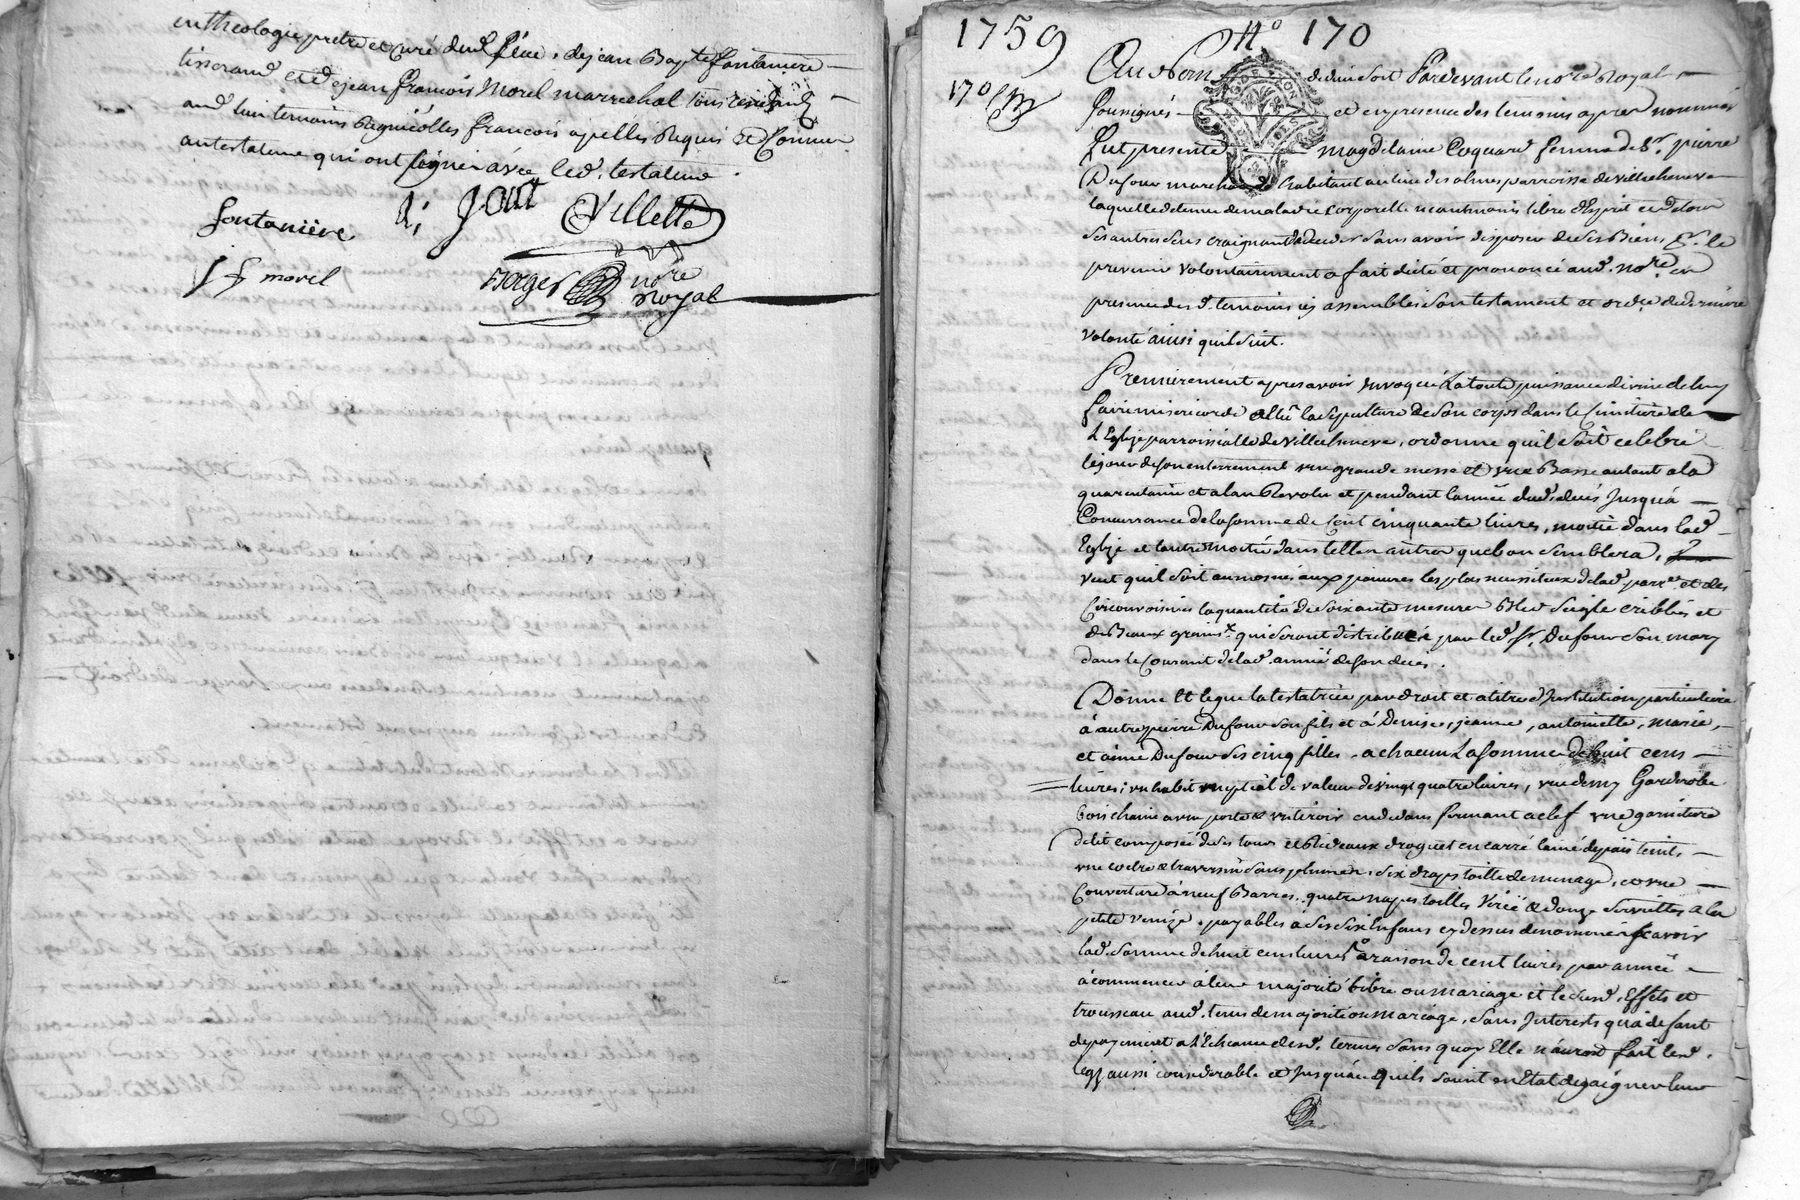 en theologie pretre et curé dud. lieu, de jean Baptte fontaniere
tisserand et de jean françois Morel marrechal tous residents
aud. lieu temoins Regnicolles francois apellés Requis et Connus
au testateur qui ont signé avec led. testateur.
fontanière Villette
j f morel
Berger nore
Royal
1759 No 170
170
Au Nom de dieu soit Pardevant le nore Royal
soussigné et en presence des temoins apres nommés
fut presente magdelaine Coquard femme de Sr. pierre
Dufour marchand habitant au lieu des olmes parroisse de villecheneve
laquelle detenue de maladie corporelle neantmoins libre d'Esprit et de tous
ses autres sens craignant de deceder sans avoir disposer de ses Biens, Pr. le
prevenir volontairement a fait dicté et prononcé aud. nore. en
presence des d. temoins icy assemblés son testament et ordce. de derniere
volonté ainsi quil suit.
Premierement apres avoir invoqué La toute puissance divine de luy
faire misericorde ellû la sepulture de son corps dans le Cimitiere de
L'Eglize parroissialle de villecheneve, ordonne quil soit celebré
le jour de son enterrement une grande messe et une Basse autant a la
quarentaine et a l'an Revolu et pendant l'année dud. decès Jusqu'à
Concurrance de la somme de Cent cinquante livres, moitié dans lad.
Eglize et l'autre moitié dans telles autres que bon semblera,
veut quil soit aumosné aux pauvres les plus necessiteux de lad. parrse et des
Circonvoisines la quantité de soixante mesures Bled seigle criblés et
de Beaux grains. qui seront distribués par led. Sr. Dufour son mary
dans le Courant de lad. année de son decés.
Donne et legue la testatrice par droit et a titre d'Institution particuliere
à autre pierre Dufour son fils et à Denise, jeanne, antoinette, marie,
et aimé Dufour ses cinq filles, a chacun La somme de huit cens
livres, un habit nuptial de valeur de vingt quatre livres, une demy Garderobe
bois chaine avec porte & un tiroir en dedans fermant a clef une garniture
de lit composée de ses tours et Rideaux droguet en carré lainé depais teint,
une coetre & traversin sans plumes, six draps toille de menage, et une
Couverture à neuf Barres, quatre napes toilles Virié & douze serviettes a la
petite venize, payables à ses six Enfans cy dessus denommés scavoir
lad. somme de huit cens livres à raison de cent livres par année
à commencer à leur majorité libre ou mariage et lesusd. Effets et
trousseau aud. tems de majorité ou mariage, sans Interests qu'a defaut
de payement a l'Echeance desd. termes sans quoy Elle n'auroit fait led.
legz aussi considerable et Jusqu'a ce quils soient en Etat de gaigner leur